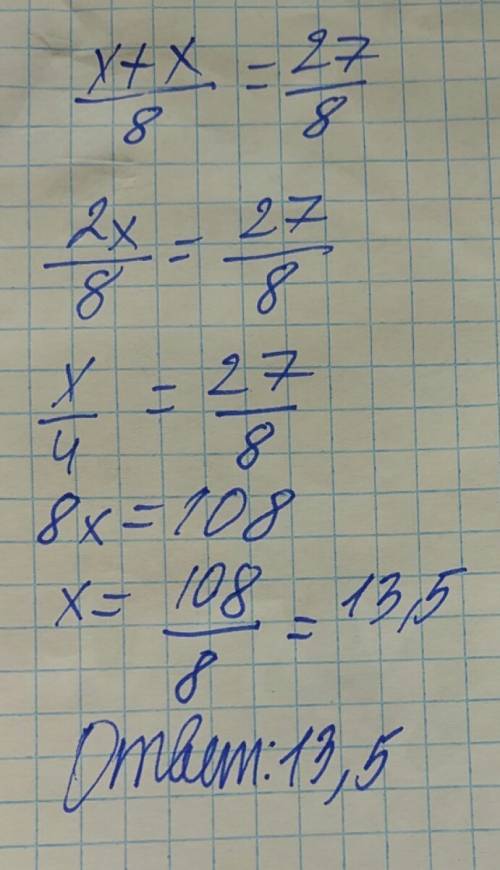 x+x/8 = 27/8
2x/8 = 27/8
x/4 = 27/8
8x=108
x= 108/8 = 13,5
Ответ: 13,5